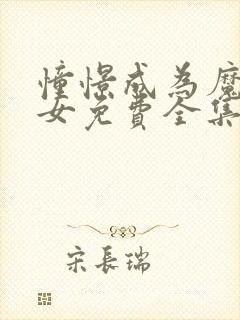 憧憬成為魔
女免費全集
宋長瑞